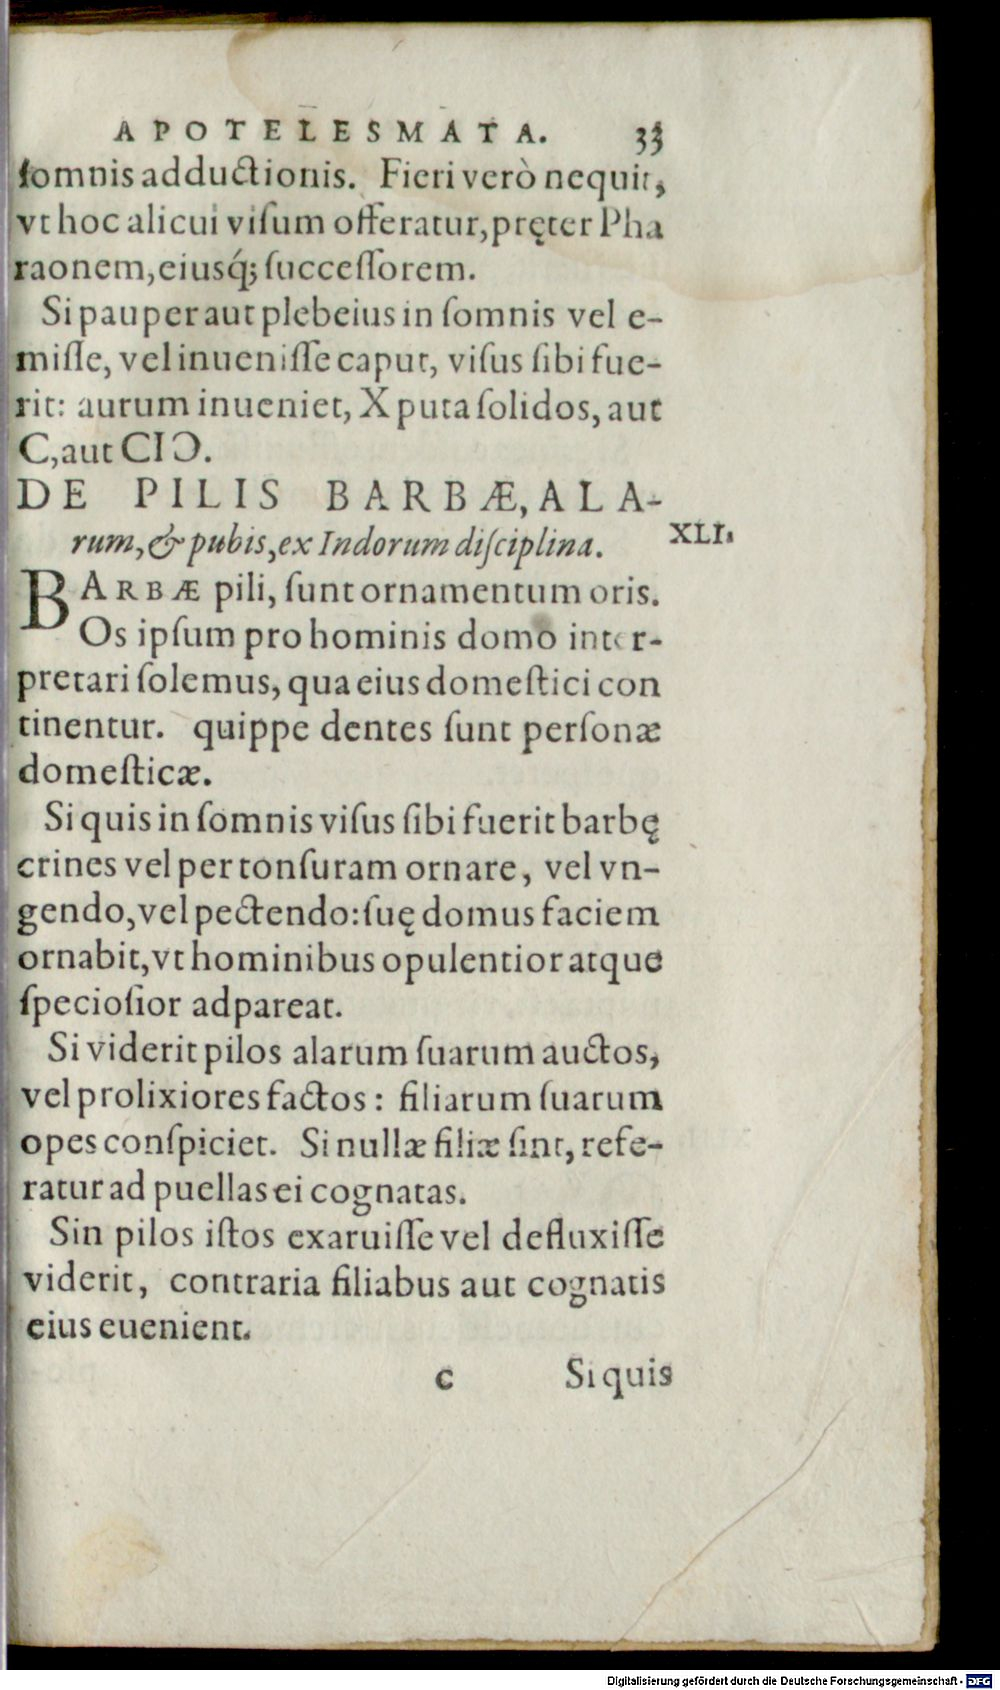 APOTELESMATA. 33
ſomnis adductionis. Fieri verò nequit,
vt hoc alicui viſum offeratur, pręter Pha
raonem, eiusq́; ſucceſſorem.
Si pauper aut plebeius in ſomnis vel e-
miſſe, vel inueniſſe caput, viſus ſibi fue-
rit: aurum inueniet, X puta ſolidos, aut
C, aut CIↃ.
DE PILIS BARBÆ, ALA-
rum, & pubis, ex Indorum diſciplina.
XLI.
BARBÆ pili, ſunt ornamentum oris.
Os ipſum pro hominis domo inter-
pretari ſolemus, qua eius domeſtici con
tinentur. quippe dentes ſunt perſonæ
domeſticæ.
Si quis in ſomnis viſus ſibi fuerit barbę
crines vel per tonſuram ornare, vel vn-
gendo, vel pectendo: ſuę domus faciem
ornabit, vt hominibus opulentior atque
ſpecioſior adpareat.
Si viderit pilos alarum ſuarum auctos,
vel prolixiores factos: filiarum ſuarum
opes conſpiciet. Si nullæ filiæ ſint, refe-
ratur ad puellas ei cognatas.
Sin pilos iſtos exaruiſſe vel defluxiſſe
viderit, contraria filiabus aut cognatis
eius euenient.
c Si quis
Digitalisierung gefördert durch die Deutsche Forschungsgemeinschaft - DFG